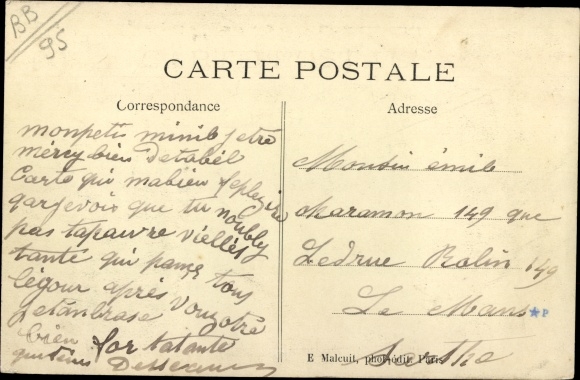 BB
95
CARTE POSTALE
Correspondance
Adresse
monpetit minile jetre
mercy bien Detabél
Carte qui mabien feplezire
garjevoix que tu noubly
pas tapauvre viellés
tante qui pance tous
légour après vous
jetanbrase
bien for tatante
Monsieu émile
Maramon 149 que
Ledrue Rolin 149
Le Mans
*P
Sarthe
E Malcuit, phot-édit, Paris